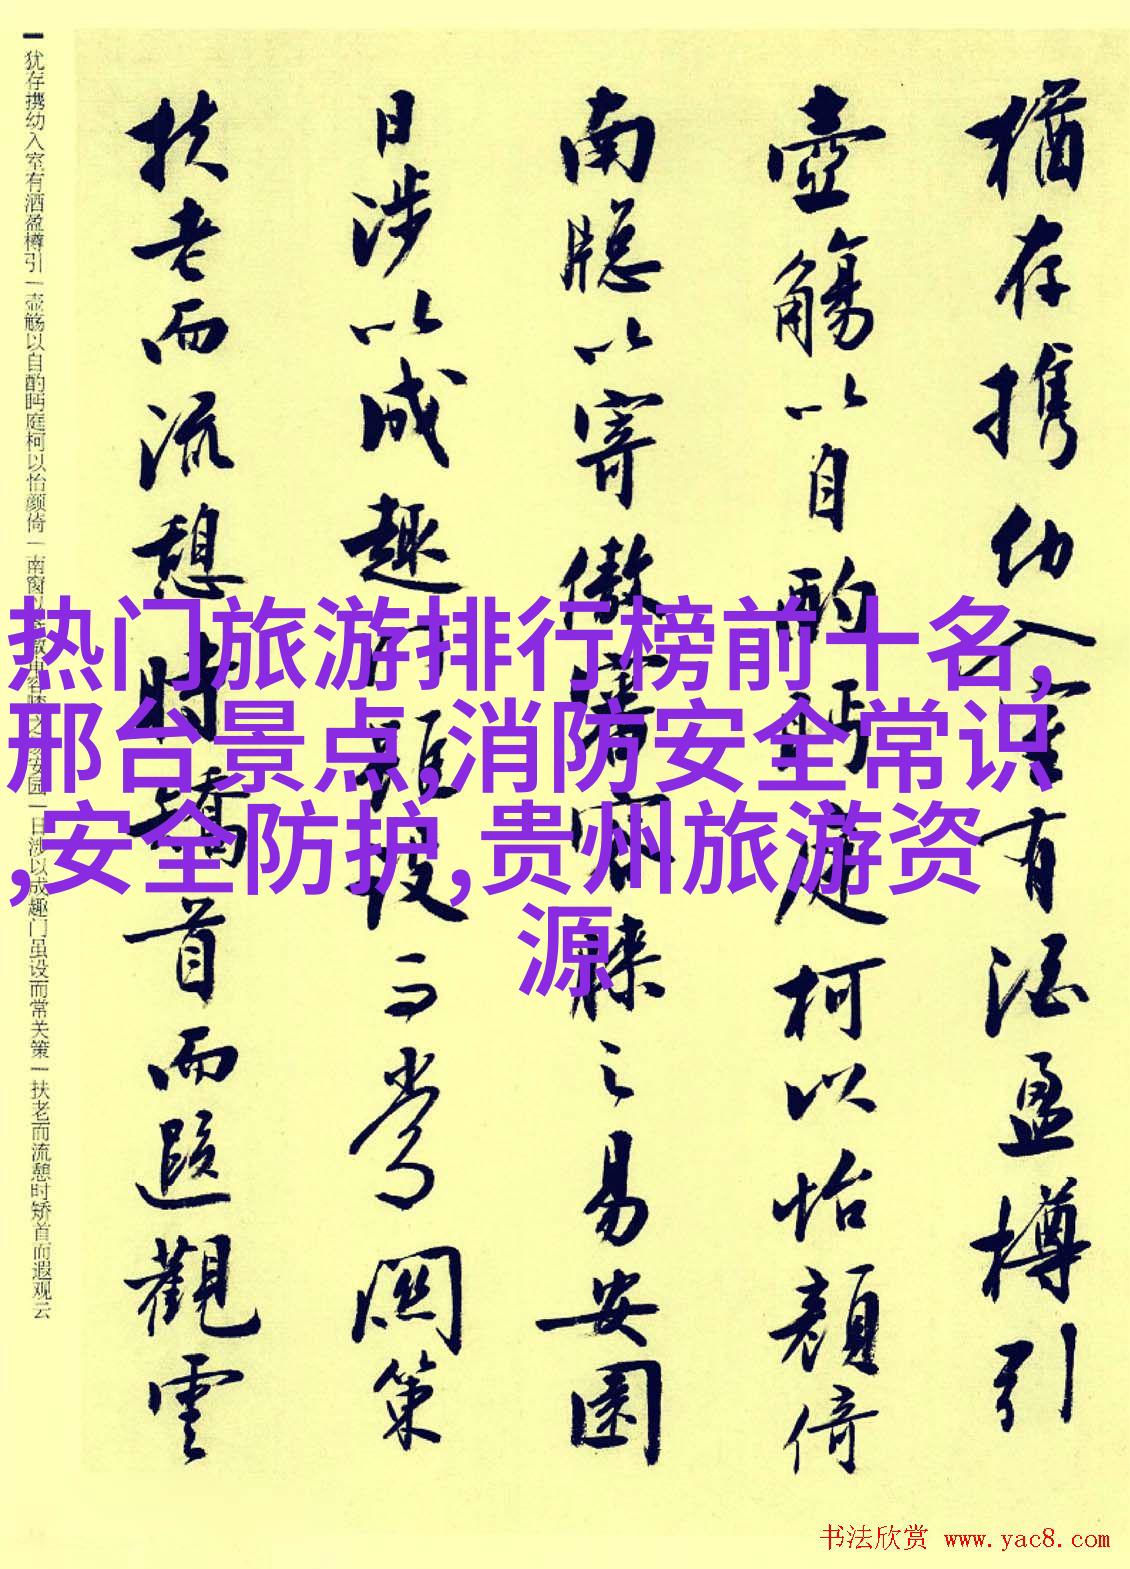 犹存携幼入室有酒盈樽引一壶觞以自酌眄庭柯以怡颜倚一南窗以
日涉以成趣门虽设而常关策一扶老而流憩时矫首而遐观云
猶存携幼入室有酒盈樽引
壶觴以自酌眄庭柯以怡顔倚
南牕以寄傲審容膝之易安園
日涉以成趣门雖设而常関策
扶老而流憩時矯首而遐觀雲
热门旅游排行榜前十名,
邢台景点,消防安全常识
,安全防护,贵州旅游资
源
书法欣赏 www.yac8.com